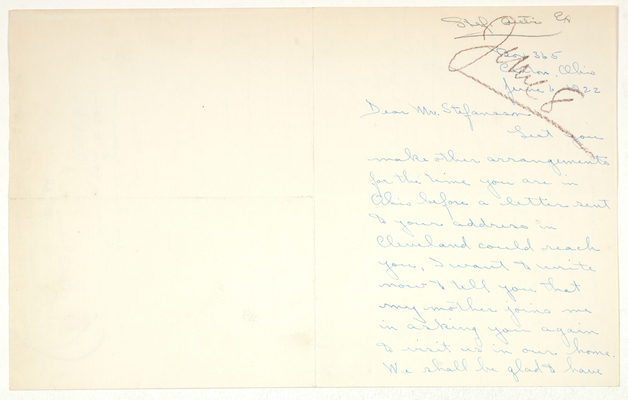 Box 365
Canton, Ohio
June 6, 1922
Dear Mr. Stefansson
Lest you
make other arrangements
for the time you are in
Ohio before a letter sent
to your address in
Cleveland could reach
you, I want to write
now to tell you that
my mother joins me
in asking you again
to visit us in our home.
We shall be glad to have